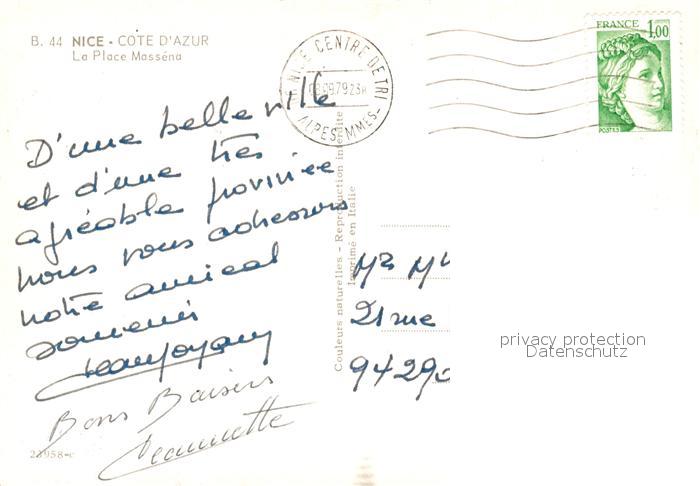 B. 44 NICE - COTE D'AZUR
La Place Masséna
NICE CENTRE DE TRI
ALPES MMES-
FRANCE
1,00
POSTES
D'une belle ville
et d'une très
agréable province
nous vous adressons
notre amical
souvenir
Bons Baisers
Jeannette
23958-c
Couleurs naturelles - Reproduction interdite
Imprimé en Italie
Mr Ml
21 rue
94290
privacy protection
Datenschutz